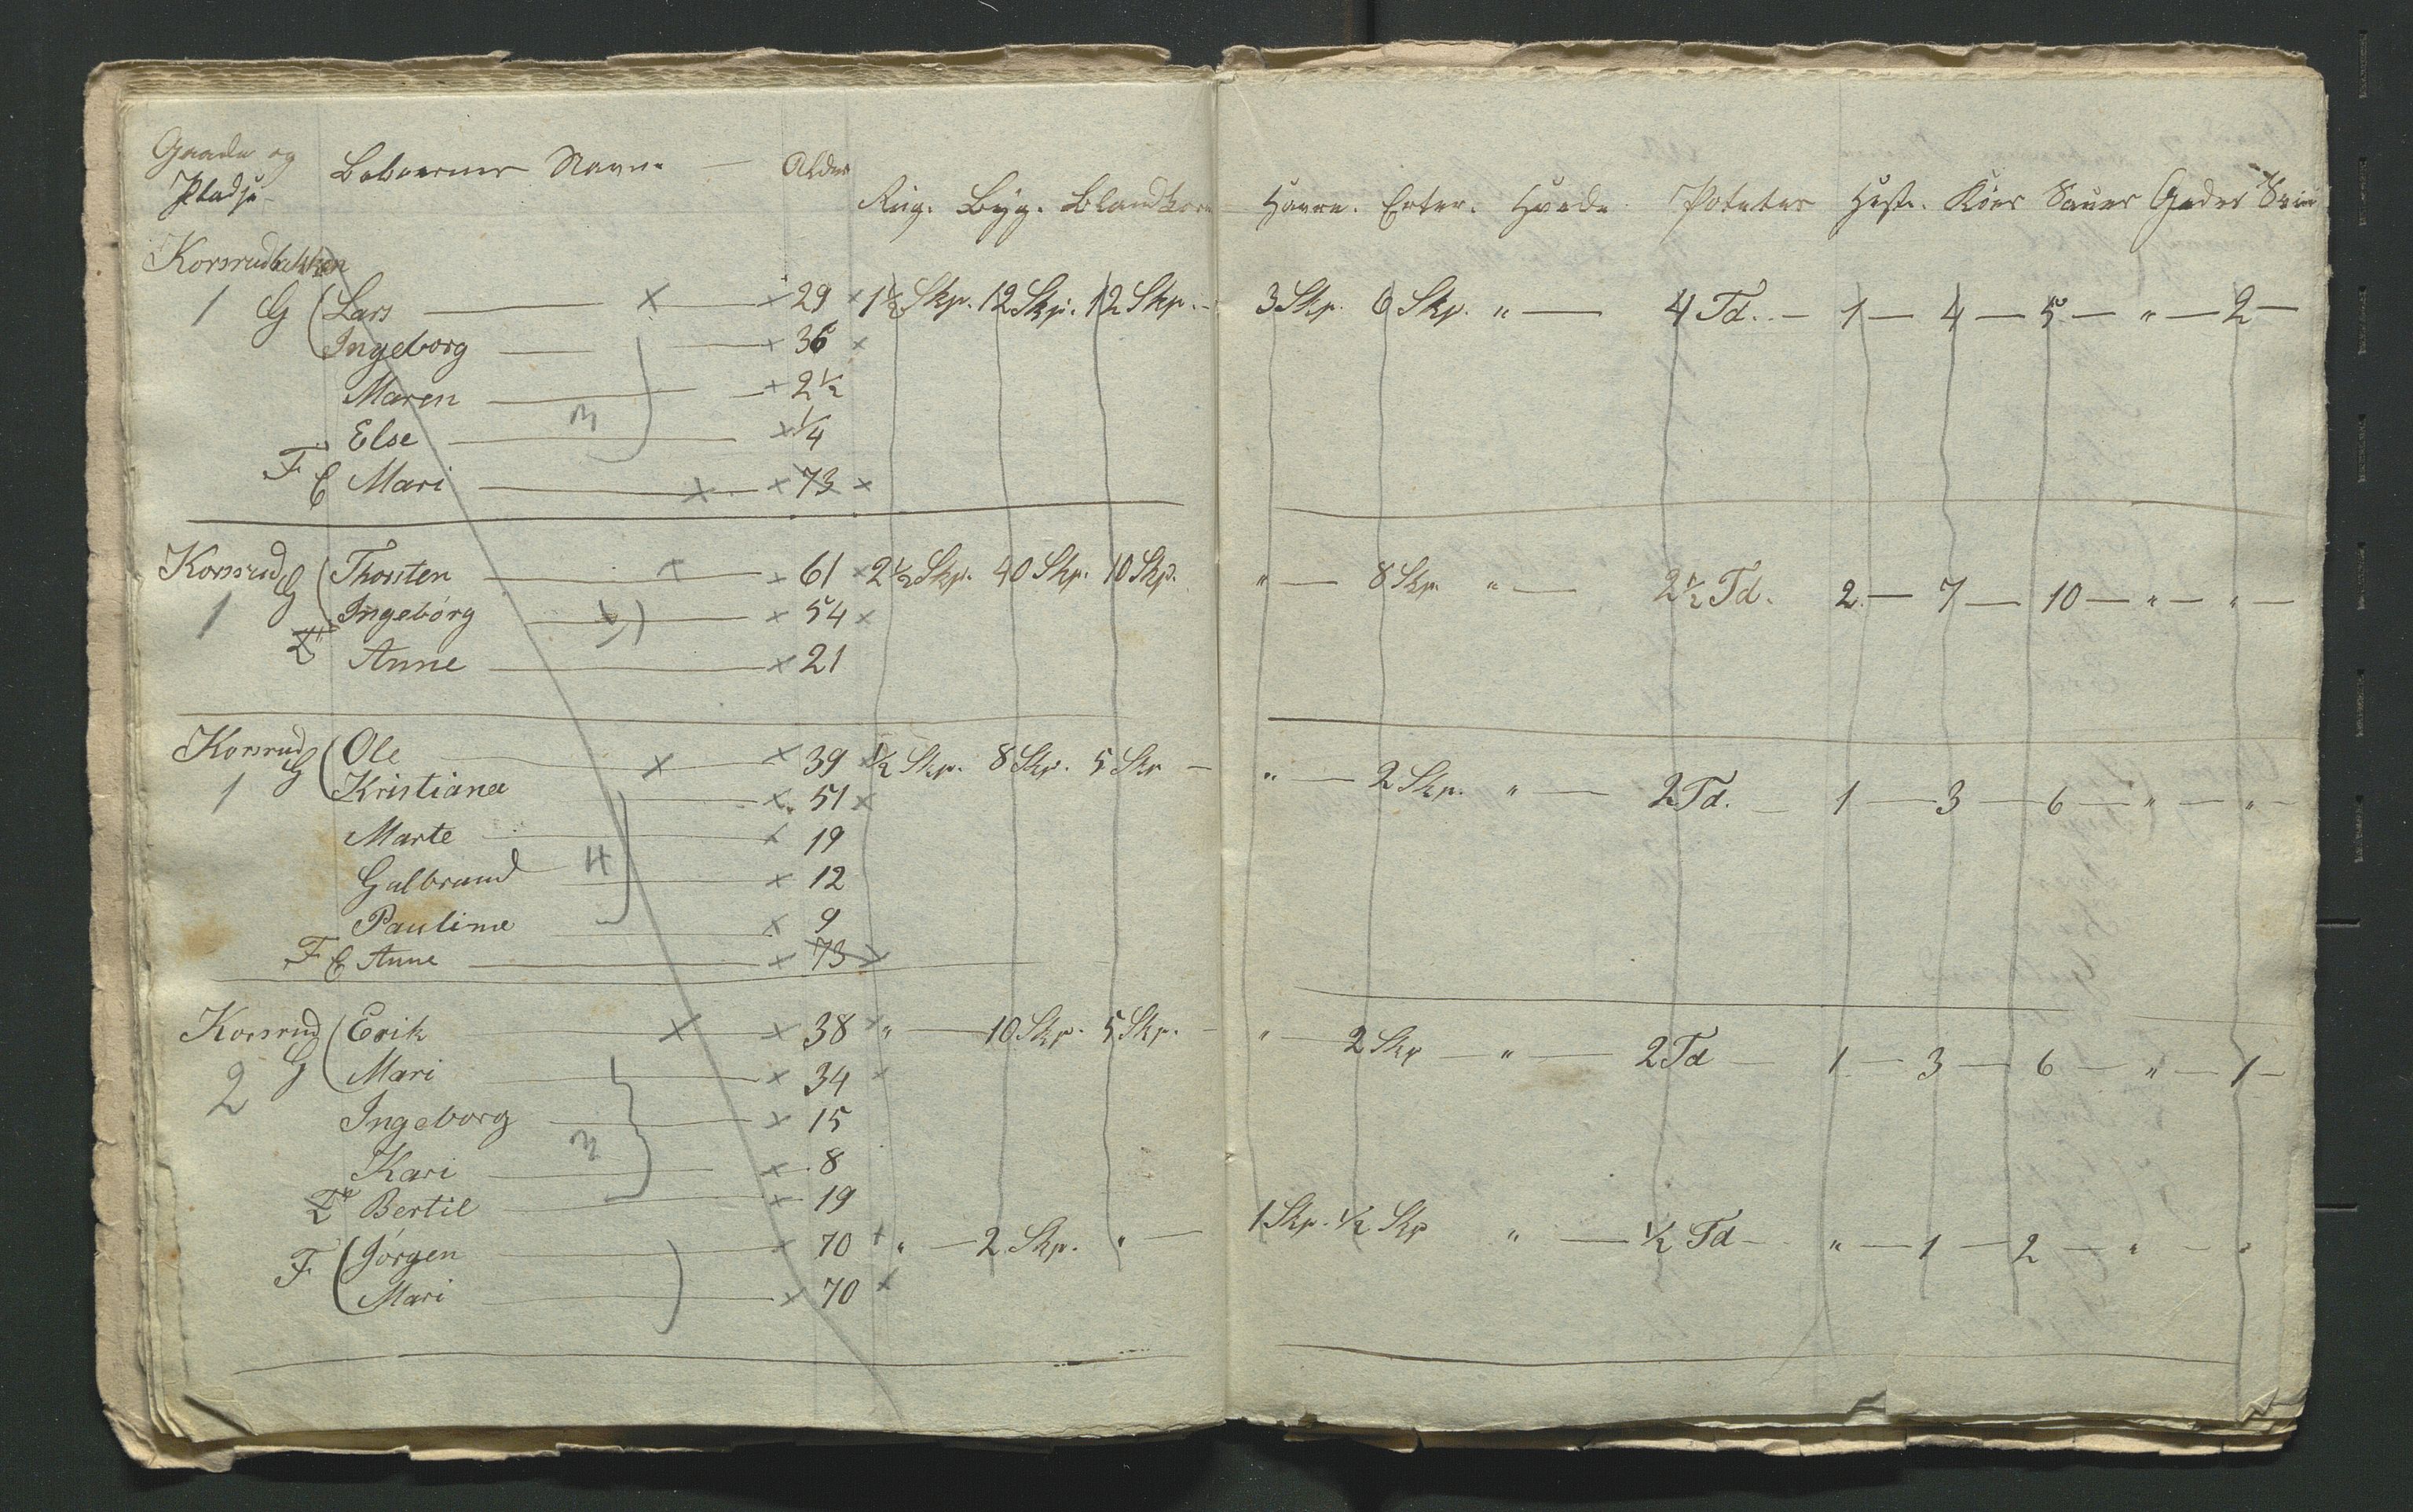 Gaarde og
Pladse Beboernes Navne — Alder Rug. Byg. Blandkorn Havre. Erter. Hvede Poteter Heste. Kiør Sauer Geder Sviin
Korsrudbakken
1 G Lars — x — x 29 x 1½ Skp. 12 Skp. 12 Skp. — 3 Skp. 6 Skp. " — 4 Td. — 1 — 4 — 5 — " — 2 —
Ingeborg — x 36 x
Maren — x 2½
3
Else — x ¼
F E Mari — x — x 73 x
Korsrud G Thorsten — x 61 x 2½ Skp. 40 Skp. 10 Skp. " — 8 Skp. " — 2½ Td. 2 — 7 — 10 — " — " —
1 Ingeborg — x 54 x
T Anne — x 21
Korsrud G Ole — x — x 39 x ½ Skp. 8 Skp. 5 Skp — " — 2 Skp. " — 2 Td. — 1 — 3 — 6 — " — " —
1 Kristiana — x 51 x
Marte — x 19
4
Gulbrand — x 12
Pauline — x 9
F E Anne — x 73 x
Korsrud G Erik — x — x 38 x " — 10 Skp. 5 Skp. — " — 2 Skp — " — 2 Td — 1 — 3 — 6 — " — 1 —
2 Mari — x 34 x
Ingeborg — x 15
3
Kari — x 8
T Bertil — x 19
F Jörgen — x 70 x " — 2 Skp. " — 1 Skp. ½ Skp " — ½ Td — " — 1 — 2 — " — "
Mari — x 70 x